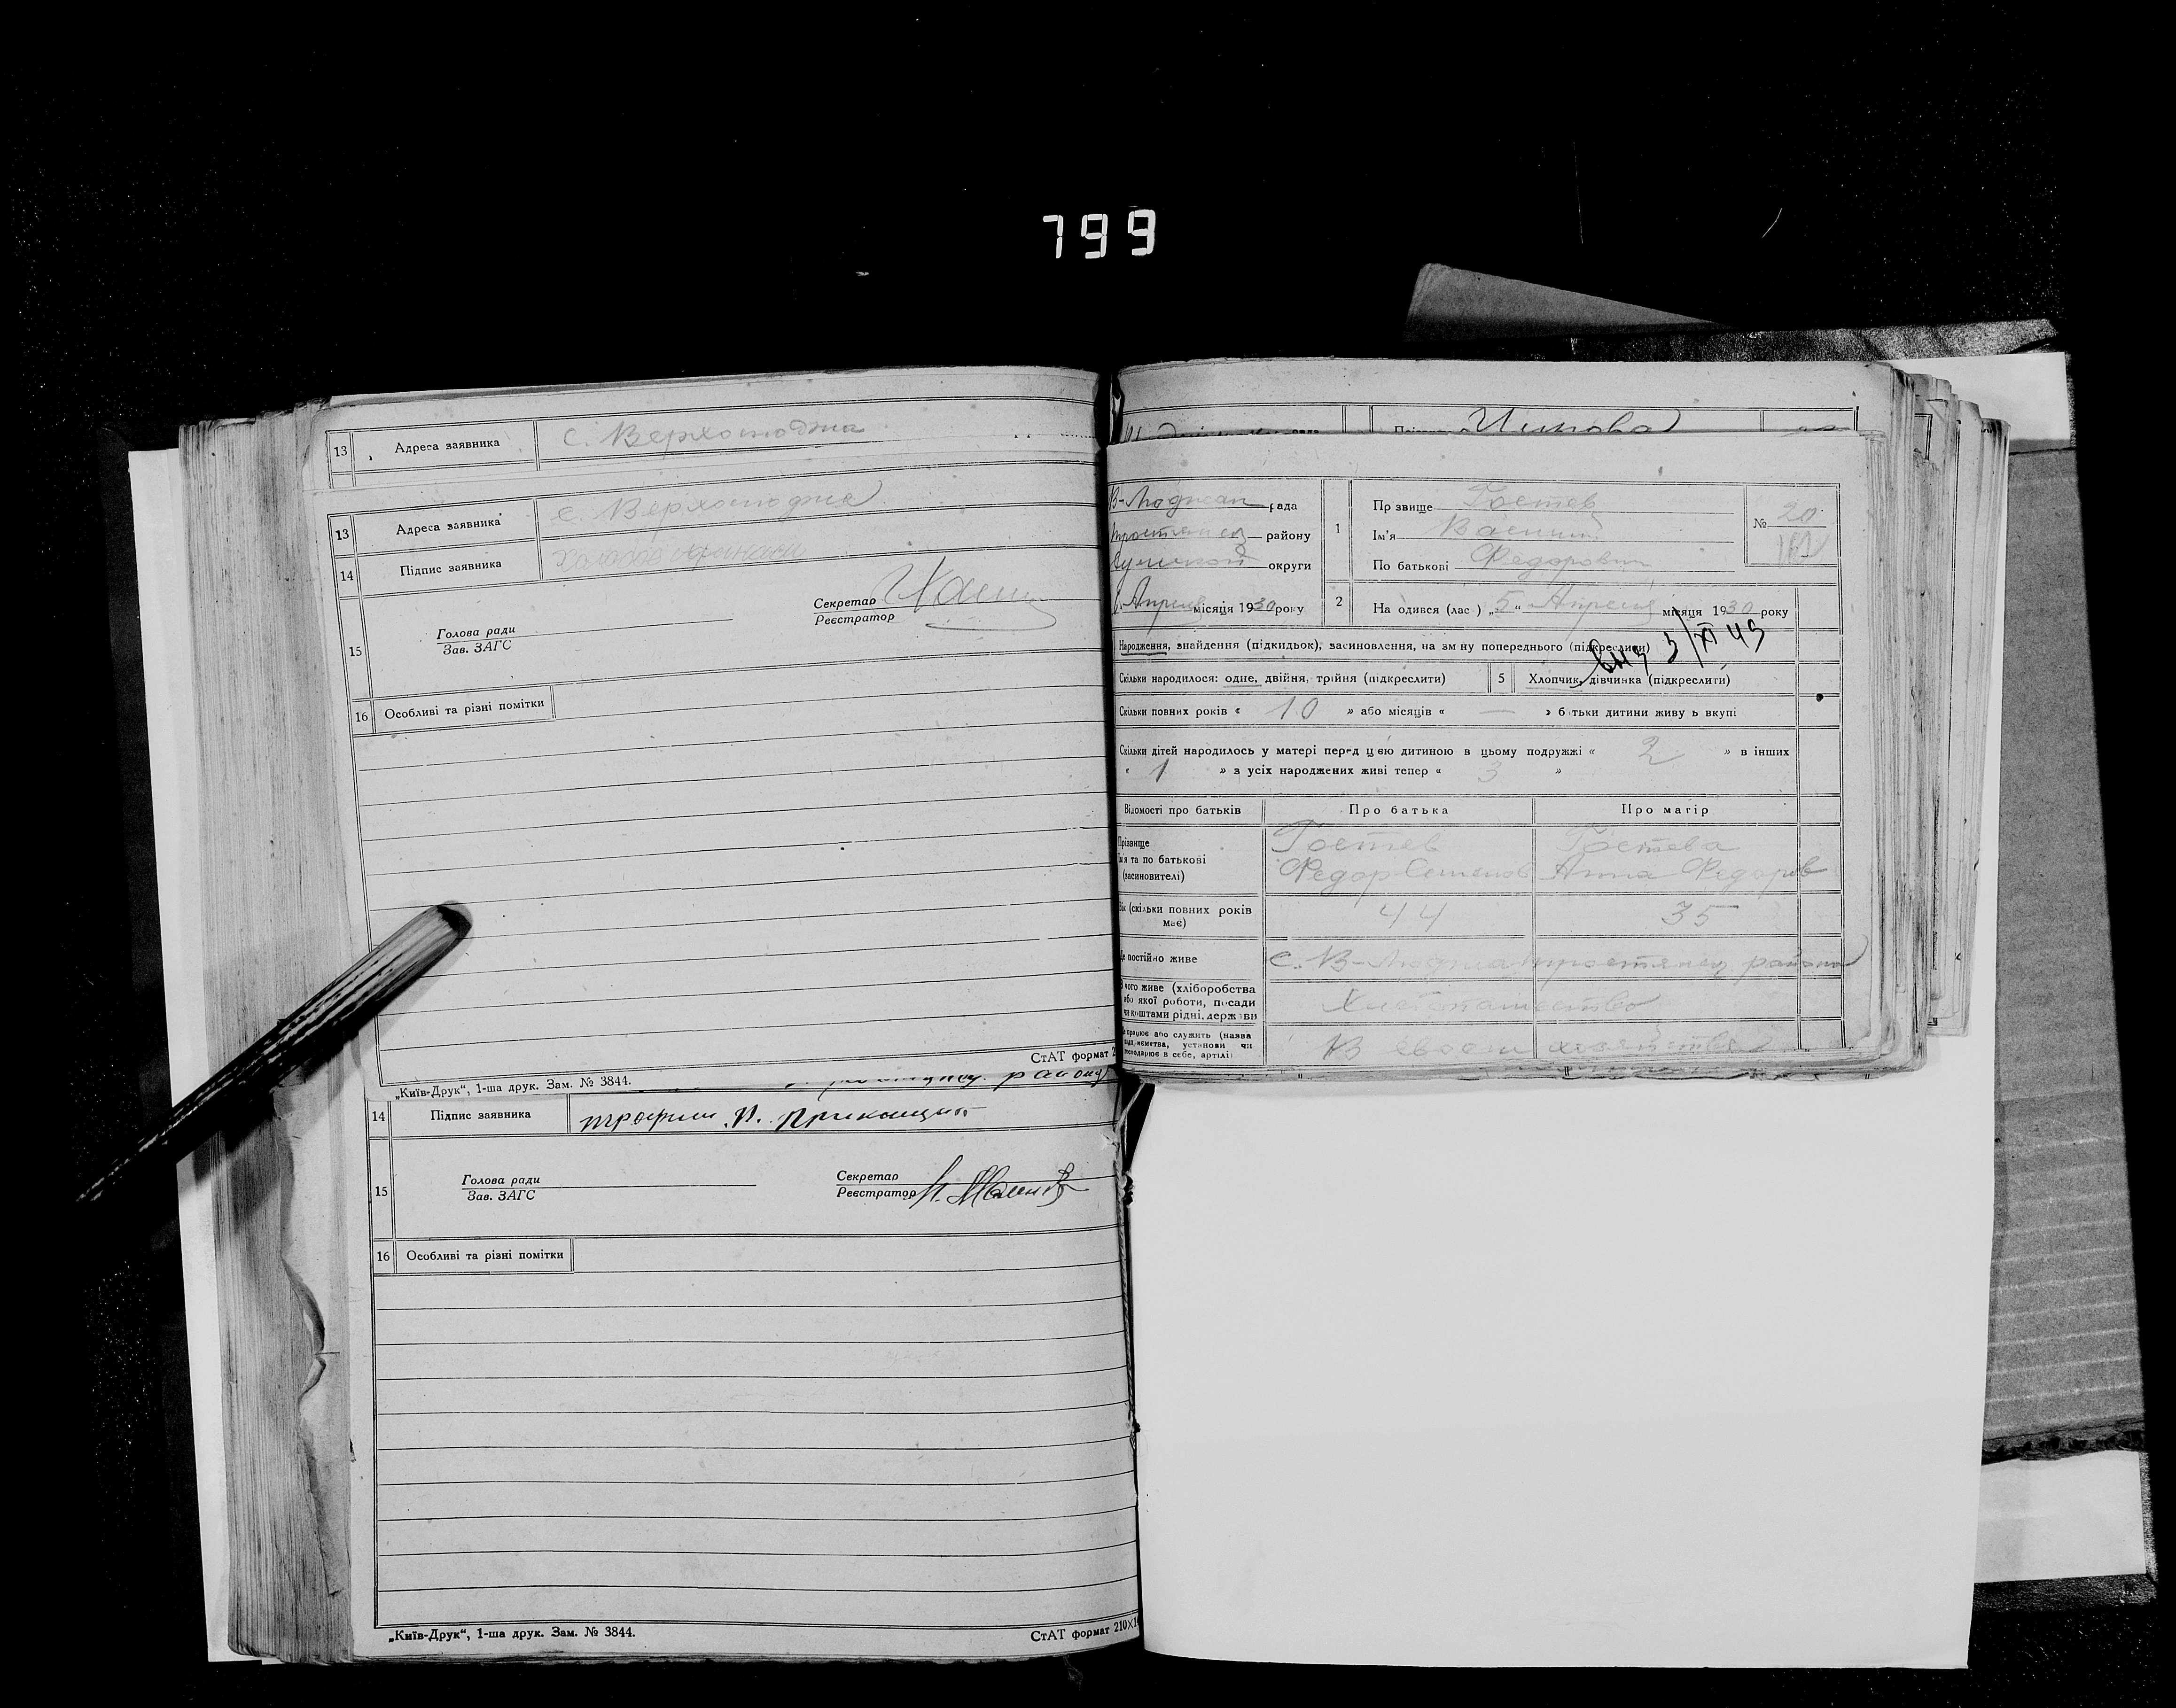 799
13 Адреса заявника с. Верхолюджа
13 Адреса заявника с. Верхолюджа
14 Підпис заявника
15 Голова ради
Зав. ЗАГС
Секретар
Реєстратор
16 Особливі та різні помітки
СтАТ формат 2
„Київ-Друк“, 1-ша друк. Зам. № 3844.
району
14 Підпис заявника
15 Голова ради
Зав. ЗАГС
Секретар
Реєстратор
16 Особливі та різні помітки
„Київ-Друк“, 1-ша друк. Зам. № 3844.
СтАТ формат 210×1
В-Люджан рада
Тростянец району
Сумской округи
Апреля місяця 1930 року
1 Прізвище Гостев
Ім'я Василий
По батькові Федорович
№ 20
2 На одився (лас ) „5“ Апреля місяця 1930 року
Народження, знайдення (підкидьок), засиновлення, на зм ну попереднього (підкреслити)
3/XI 49
Скільки народилося: одне, двійня, трійня (підкреслити) 5 Хлопчик, дівчинка (підкреслити)
Скільки повних років « 10 » або місяців « — » б тьки дитини живу ь вкупі
Скільки дітей народилось у матері перед цією дитиною в цьому подружжі « 2 » в інших
« 1 » з усіх народжених живі тепер « 3 »
Відомості про батьків Про батька Про матір
Прізвище Гостев Гостева
Ім'я та по батькові Федор Семенов Анна Федоров
(засиновителі)
Вік (скільки повних років має) 44 35
Де постійно живе с. В-Люджа Тростянец района
З чого живе (хліборобства
або якої роботи, посади
чи коштами рідні, держави Хлебопашество
Де працює або служить (назва
підприємства, установи чи
господарює в себе, артілі) В своем хозяйстве